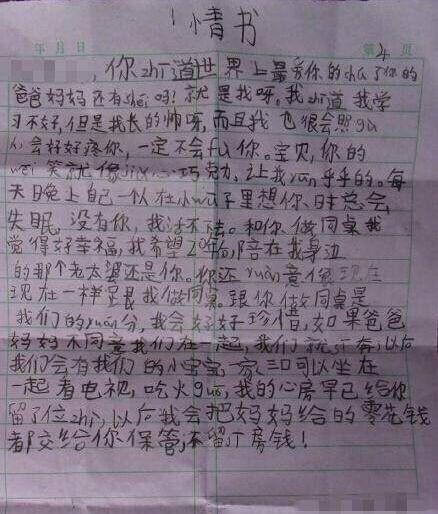 情书
年 月 日 第4页
，你zhī道世界上最爱你的chú了你的
爸爸妈妈还有shéi吗？就是我呀。我zhī道我学
习不好，但是我长的帅呀，而且我也很会照gù
人会好好疼你，一定不会fù你。宝贝，你的
wēi笑就像 巧克力，让我 乎乎的。每
天晚上自己一个人在小 子里想你，日 总会
失眠，没有你，我活不下去。和你做同桌我
觉得好幸福，我希望20年后，陪在我身边
的那个老太婆还是你。你还yuàn意像现在
现在一样 是我做同桌。跟你做同桌是
我们的yuán分，我会好好珍惜，如果爸爸
妈妈不同意我们在一起，我们就 ，以后
我们会有我们的小宝宝，一家三口可以坐在
一起看电视，吃火guō，我的心房早已给你
留了位zhì，以后我会把妈妈给的零花钱
都交给你保管，不留 房钱！